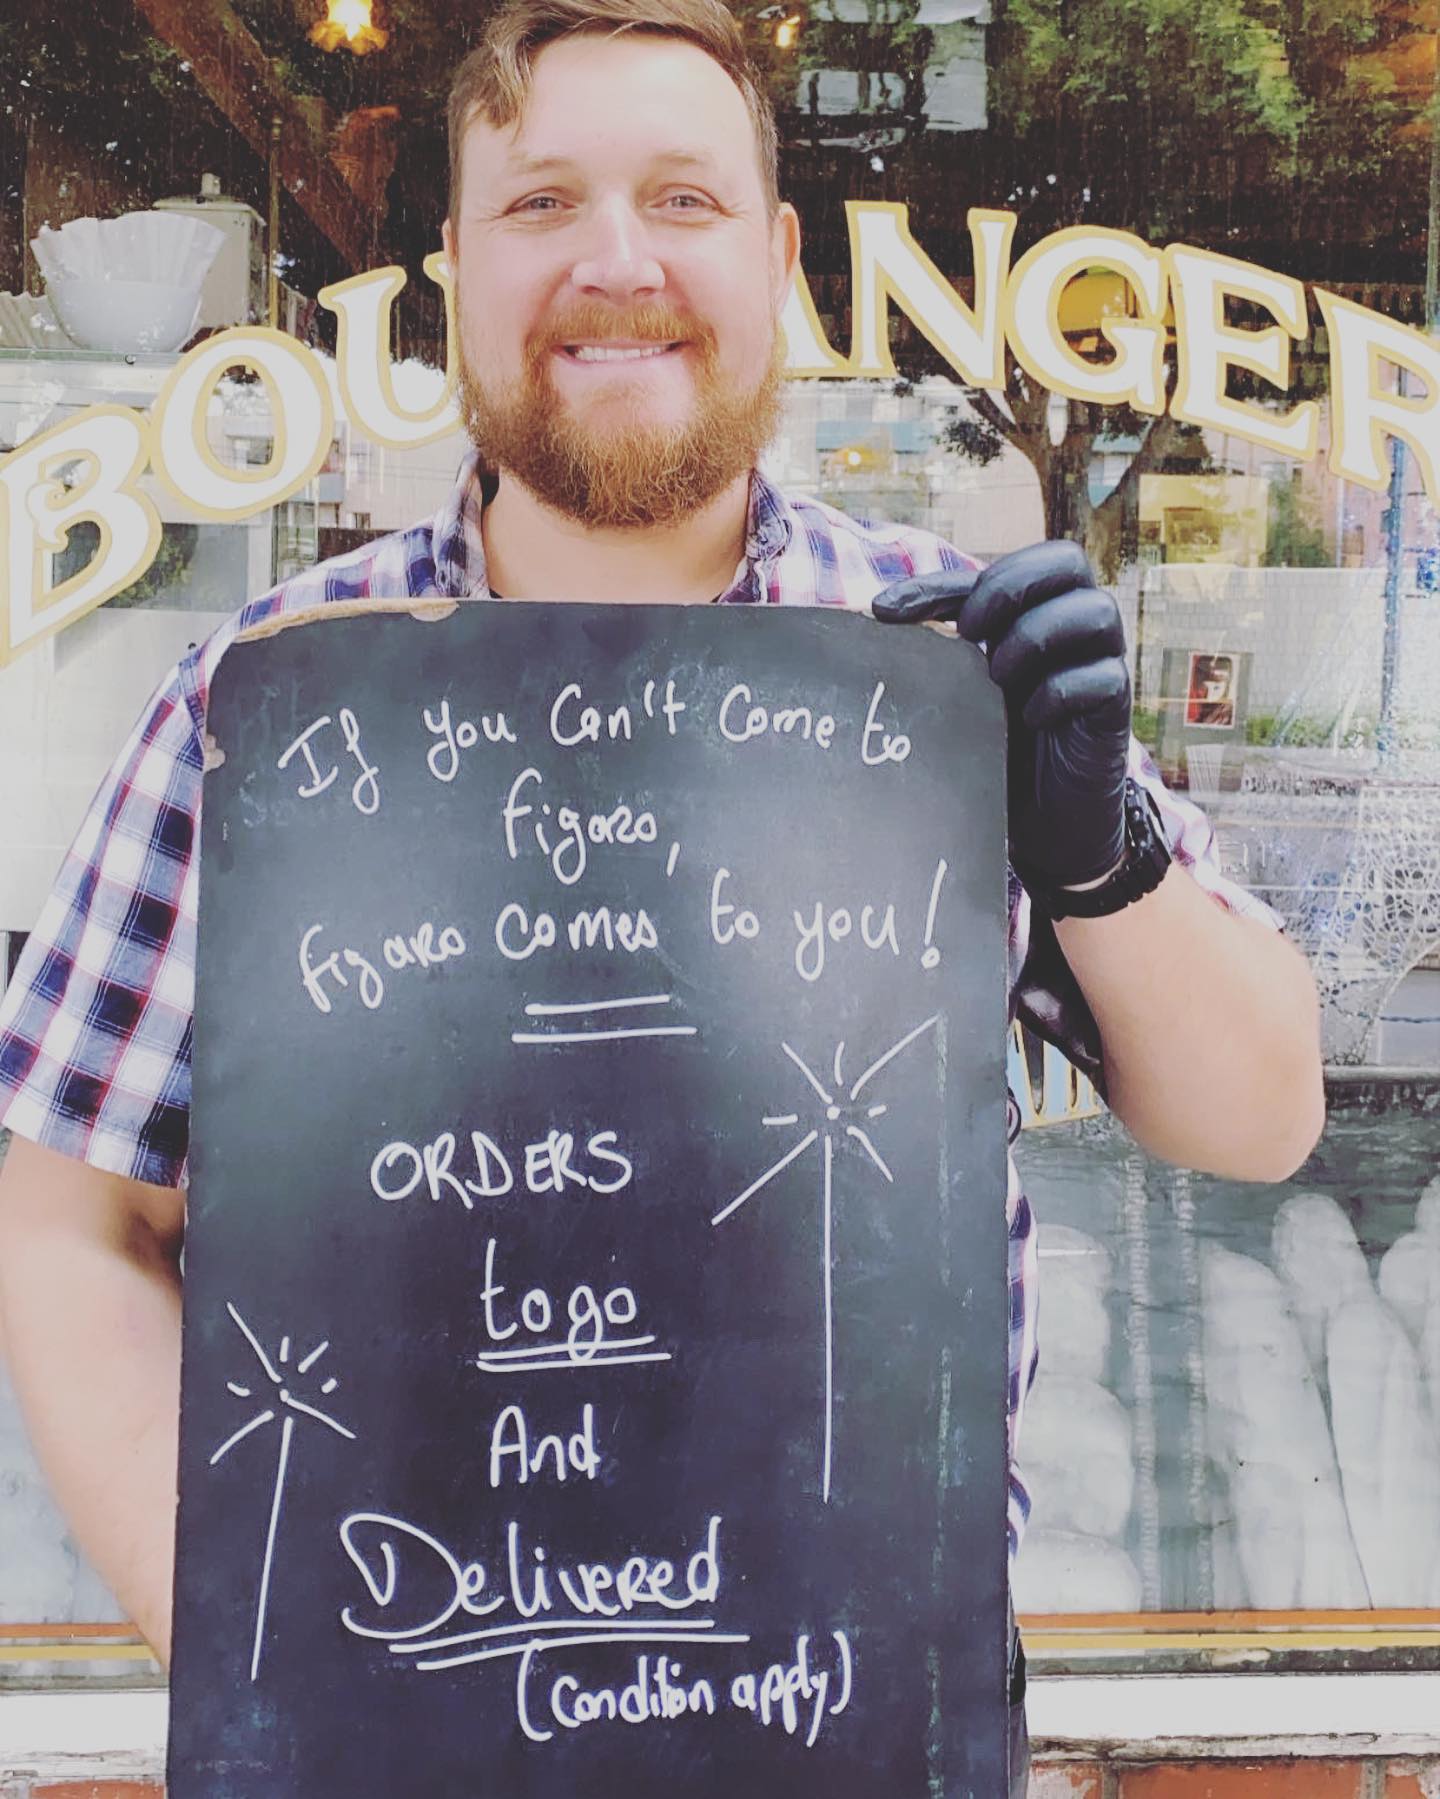 BOU ANGER
If you Can't Come to
figaro,
figaro comes to you!
ORDERS
to go
And
Delivered
(Condition apply)